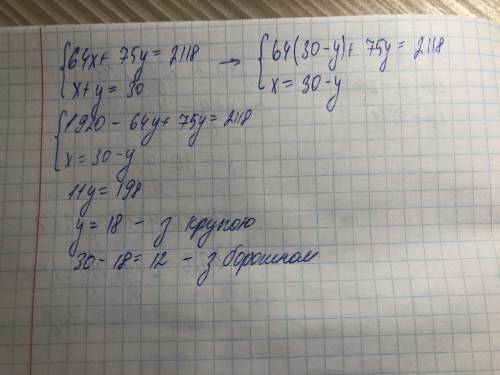 {64x + 75y = 2118 → {64(30-y) + 75y = 2118
{x+y = 30 {x = 30-y
{1920 - 64y + 75y = 2118
{x = 30-y
11y = 198
y = 18 - з крупою
30 - 18 = 12 - з борошном